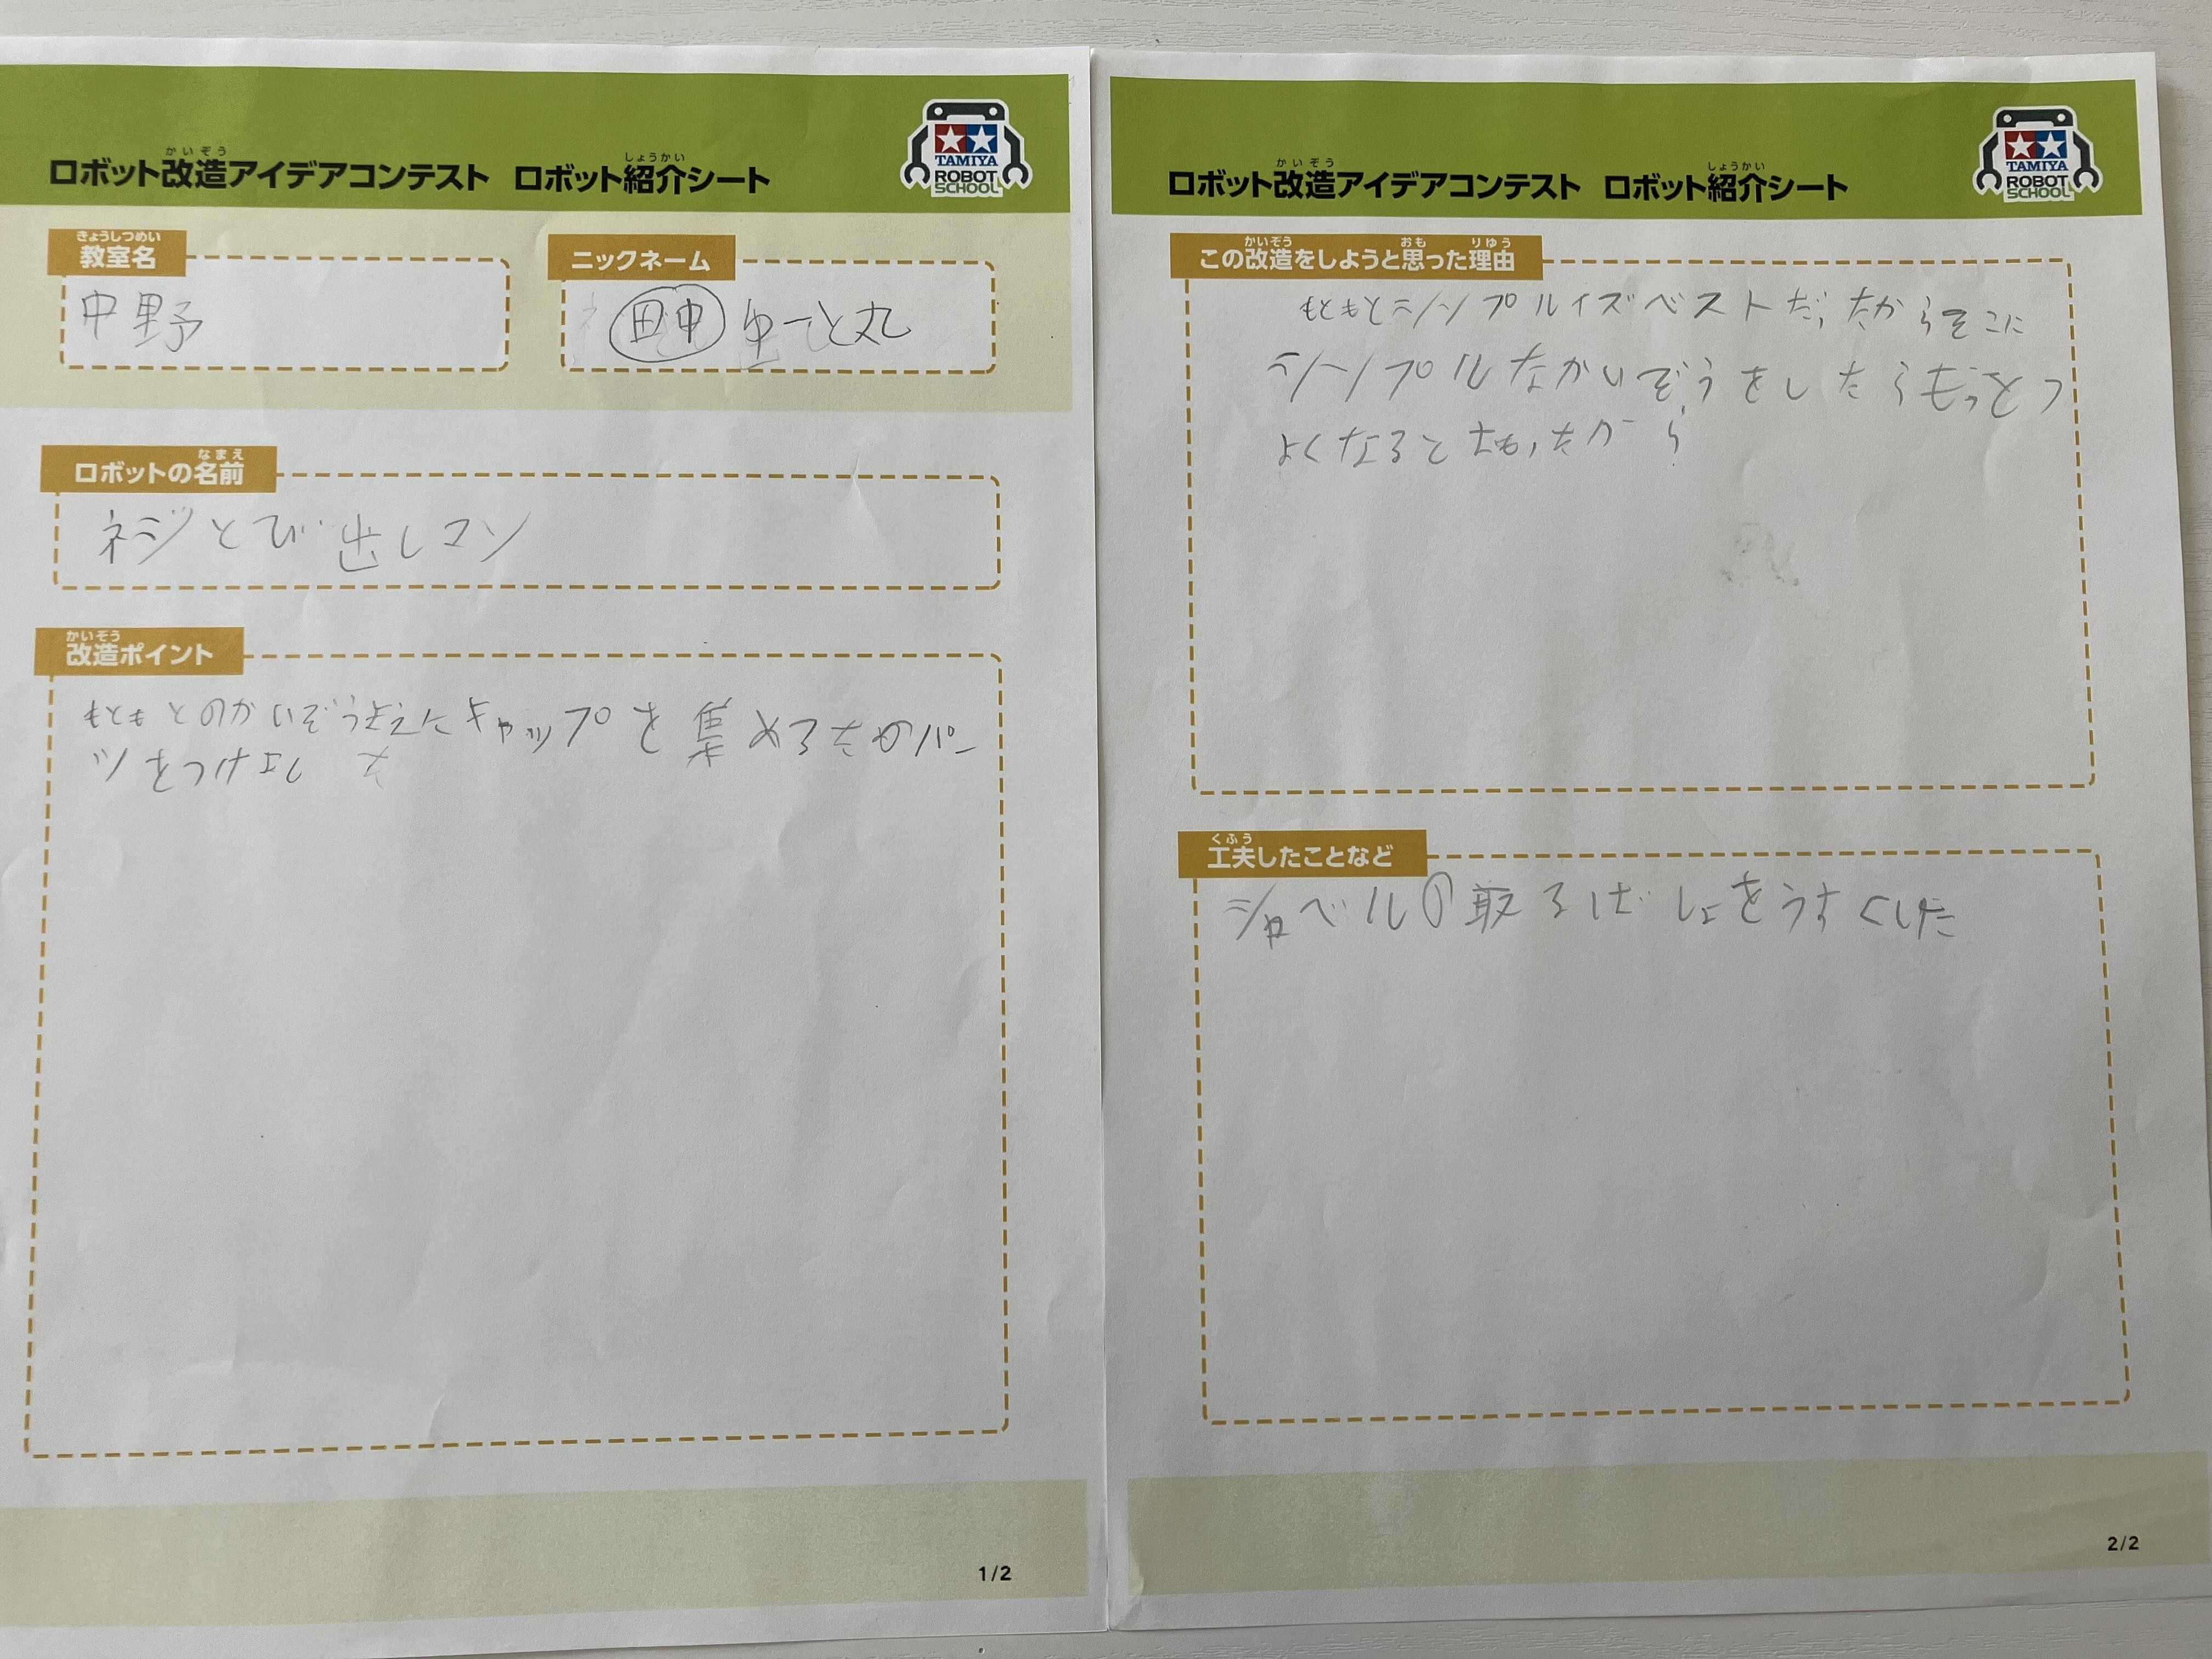 かいぞう しょうかい
ロボット改造アイデアコンテスト ロボット紹介シート
TAMIYA
ROBOT
SCHOOL
きょうしつめい
教室名
中野
ニックネーム
田中 一と丸
なまえ
ロボットの名前
ネジとび出しマン
かいぞう
改造ポイント
もともとのかいぞう キャップを集めるためのパー
ツをつけ した
1/2
かいぞう しょうかい
ロボット改造アイデアコンテスト ロボット紹介シート
TAMIYA
ROBOT
SCHOOL
かいぞう おも りゆう
この改造をしようと思った理由
もともとシンプルイズベストだったからそこに
シンプルなかいぞうをしたらもっとつ
よくなるとおもったから
くふう
工夫したことなど
ショベルの取るばしょをうすくした
2/2